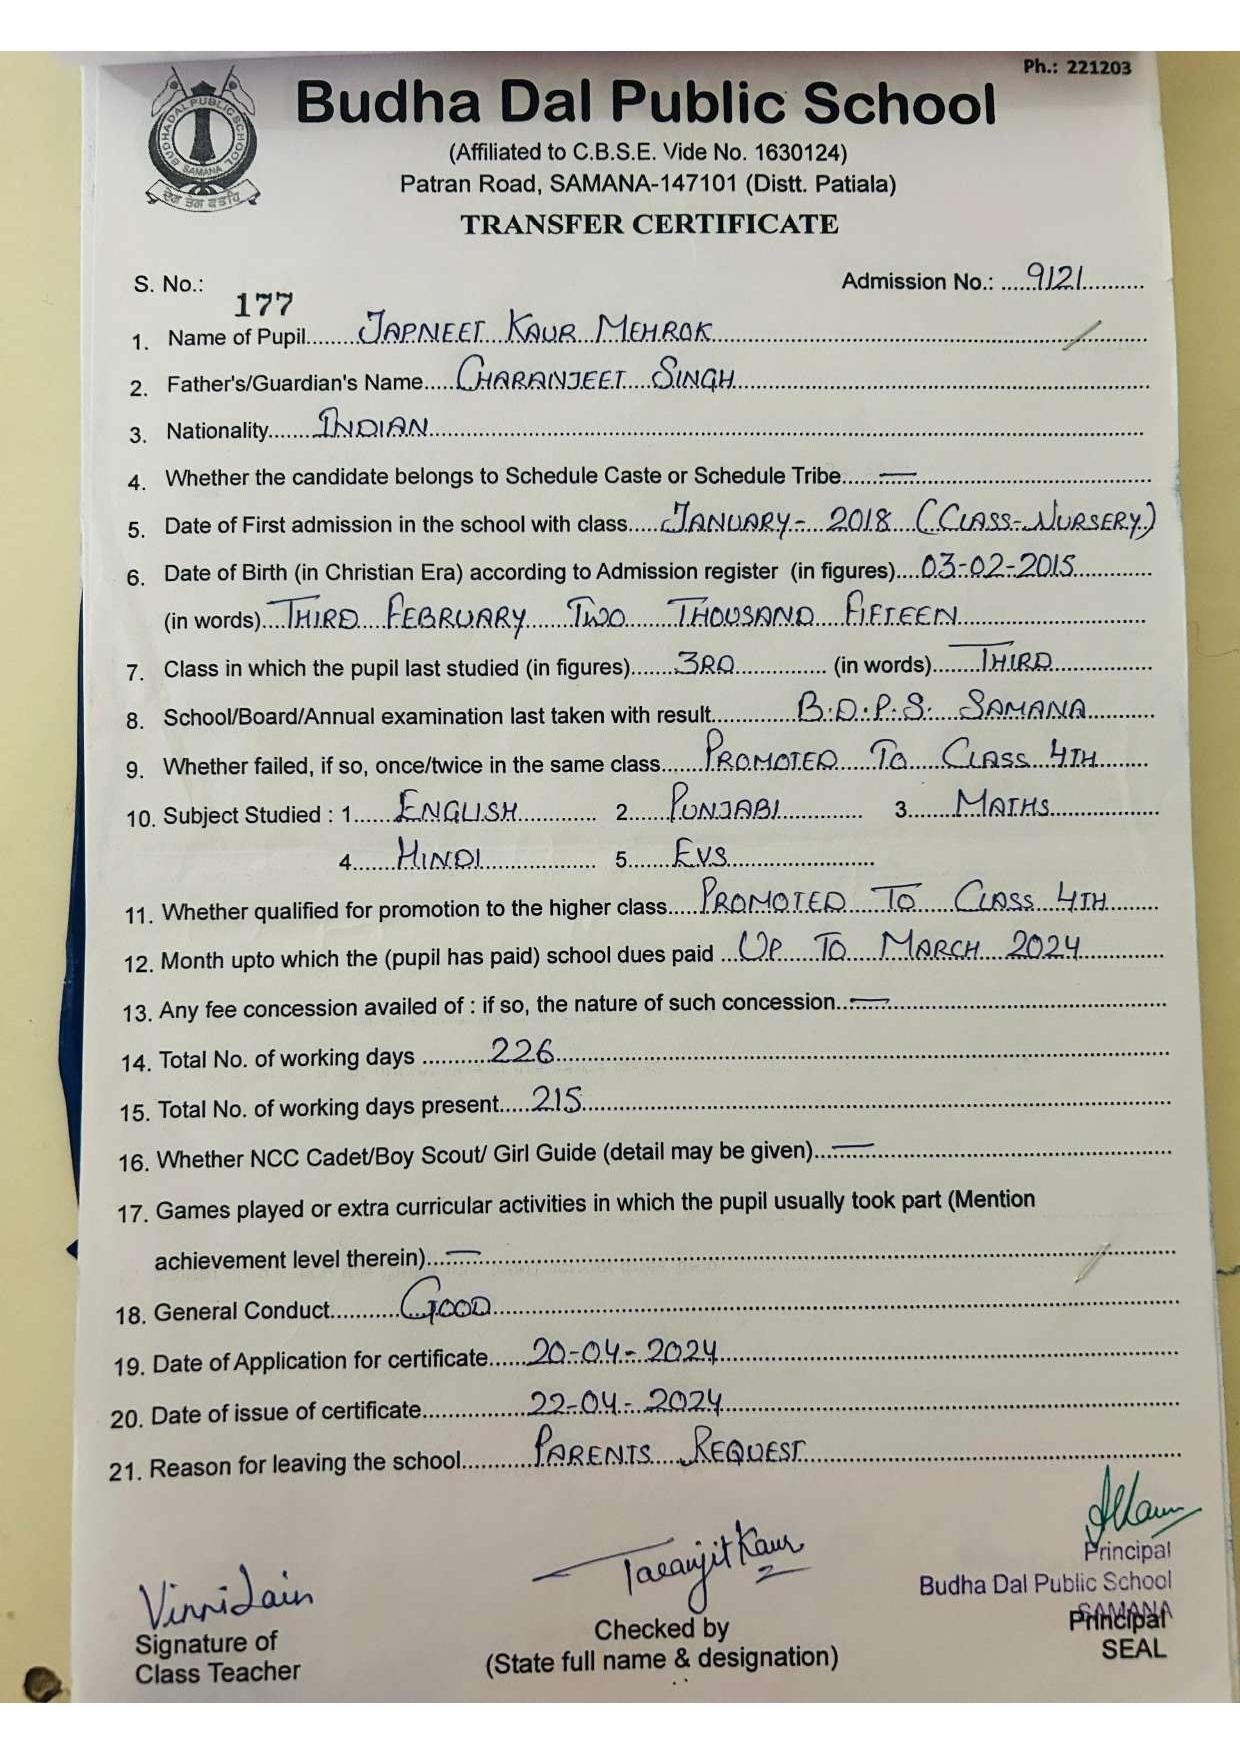 Ph.: 221203
BUDHA DAL PUBLIC SCHOOL
SAMANA
ਦੇਗ ਤੇਗ ਫਤਹਿ
Budha Dal Public School
(Affiliated to C.B.S.E. Vide No. 1630124)
Patran Road, SAMANA-147101 (Distt. Patiala)
TRANSFER CERTIFICATE
S. No.: 177 Admission No.: 9121
1. Name of Pupil JAPNEET KAUR MEHROK
2. Father's/Guardian's Name CHARANJEET SINGH
3. Nationality INDIAN
4. Whether the candidate belongs to Schedule Caste or Schedule Tribe —
5. Date of First admission in the school with class JANUARY- 2018 (CLASS-NURSERY)
6. Date of Birth (in Christian Era) according to Admission register (in figures) 03-02-2015
(in words) THIRD FEBRUARY TWO THOUSAND FIFTEEN
7. Class in which the pupil last studied (in figures) 3RD (in words) THIRD
8. School/Board/Annual examination last taken with result B.D.P.S. SAMANA
9. Whether failed, if so, once/twice in the same class PROMOTED TO CLASS 4TH
10. Subject Studied : 1 ENGLISH 2 PUNJABI 3 MATHS
4 HINDI 5 EVS
11. Whether qualified for promotion to the higher class PROMOTED TO CLASS 4TH
12. Month upto which the (pupil has paid) school dues paid UP TO MARCH 2024
13. Any fee concession availed of : if so, the nature of such concession —
14. Total No. of working days 226
15. Total No. of working days present 215
16. Whether NCC Cadet/Boy Scout/ Girl Guide (detail may be given) —
17. Games played or extra curricular activities in which the pupil usually took part (Mention
achievement level therein) —
18. General Conduct GOOD
19. Date of Application for certificate 20-04-2024
20. Date of issue of certificate 22-04-2024
21. Reason for leaving the school PARENTS REQUEST
Vinni Jain
Signature of
Class Teacher
Taranjit Kaur
Checked by
(State full name & designation)
Principal
Budha Dal Public School
SAMANA
Principal
SEAL